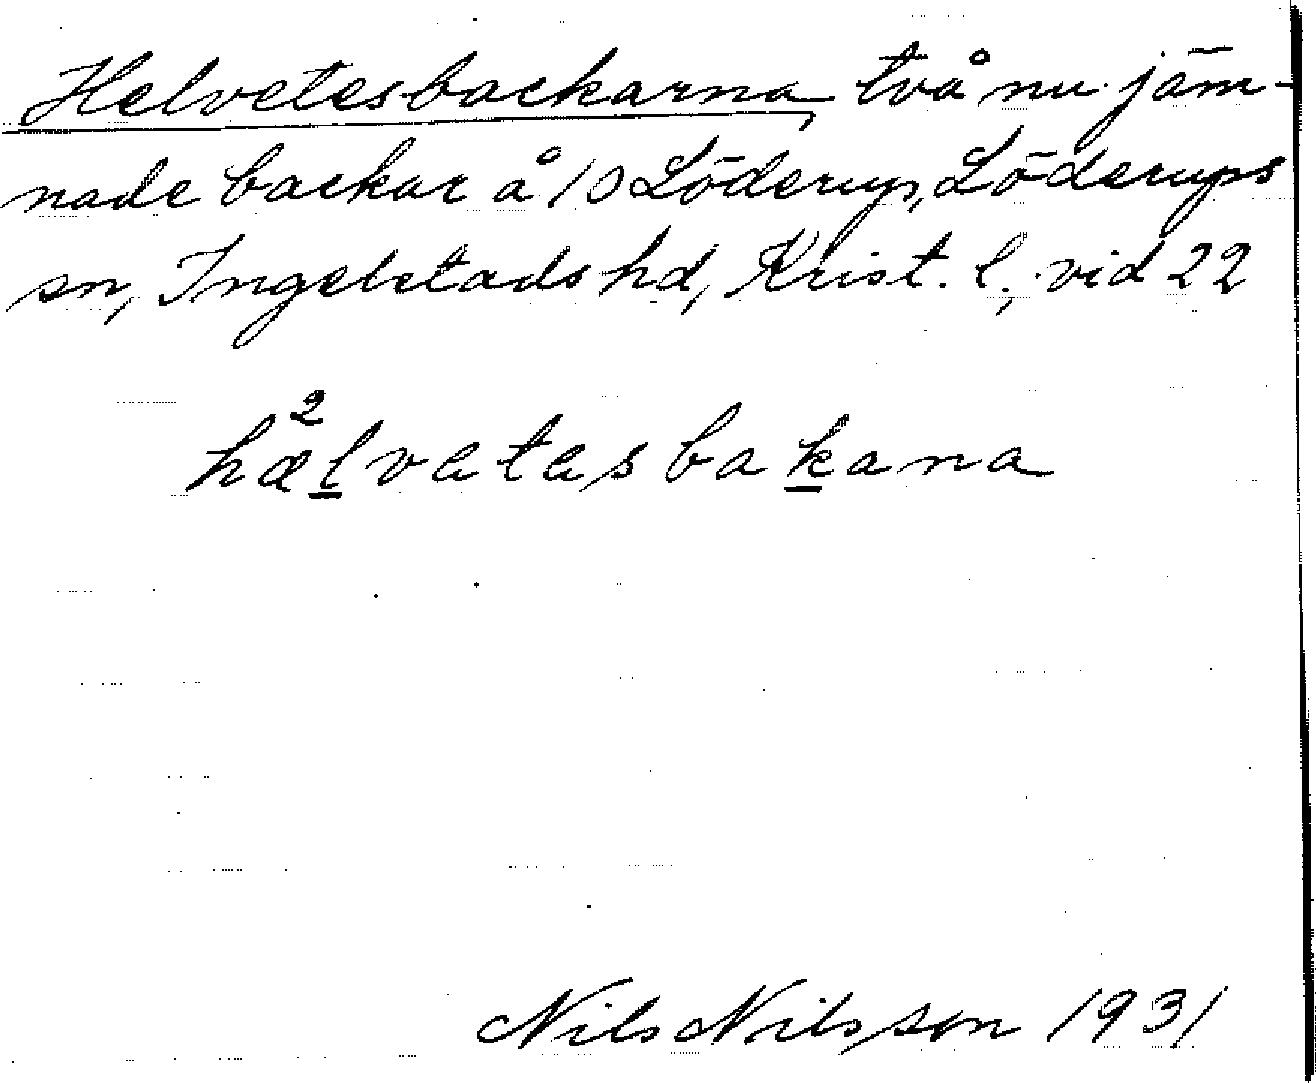 Helvetesbackarna, två nu jäm-
nade backar å 10 Löderup, Löderups
sn, Ingelstads hd, Krist. l., vid 22
hæ²lvetesbakana
Nils Nilsson 1931